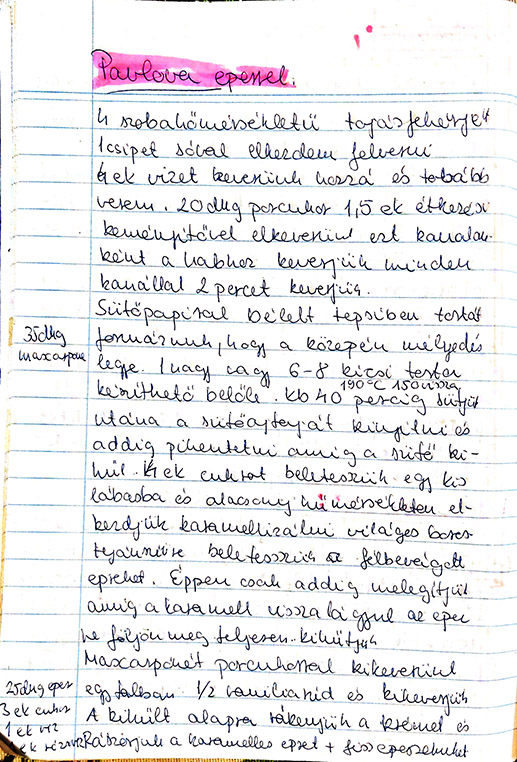 Pavlova eperrel.
4 szobahőmérsékletű tojásfehérjét
1 csipet sóval elkezdem felverni
4 ek vizet keverünk hozzá és tovább
verem. 20 dkg porcukor 1,5 ek étkezési
keményítővel elkeverünk ezt kanalan-
ként a habhoz keverjük minden
kanállal 2 percet keverjük.
Sütőpapírral bélelt tepsiben tortát
formázunk, hogy a közepén mélyedés
legyen. 1 nagy vagy 6-8 kicsi torta
készíthető belőle. kb 40 percig sütjük
190°C 150 vissza
utána a sütőajtaját kinyitni és
addig pihentetni amíg a sütő ki-
hűl. 4 ek cukrot beleteszünk egy kis
lábasba és alacsony hőmérsékleten el-
kezdjük karamellizálni világos boros-
tyánszínűre beletesszük félbevágott
epreket. Éppen csak addig melegítjük
amíg a karamell visszalágyul az eper
ne főjön meg teljesen. kihűtjük
Mascarponét porcukorral kikeverünk
egy tálban 1/2 vaníliarúd és kikeverjük
A kihűlt alapra rákenjük a krémet és
Rászórjuk a karamelles epret + friss eperszemeket
35 dkg
mascarpone
25 dkg eper
3 ek cukor
1 ek víz